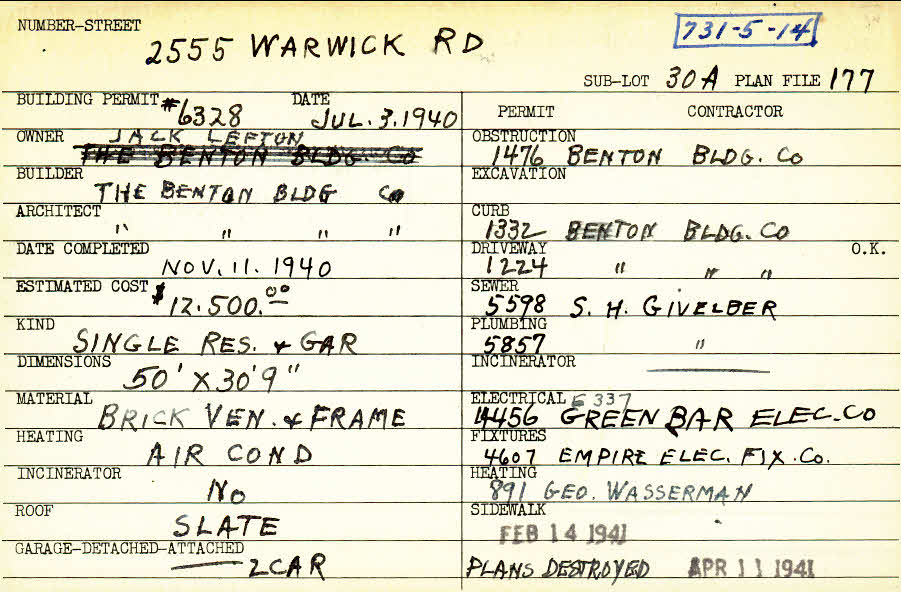 NUMBER-STREET
2555 WARWICK RD
731-5-14
SUB-LOT 30A PLAN FILE 177
BUILDING PERMIT #6328 DATE JUL. 3. 1940
OWNER JACK LEFTON
THE BENTON BLDG. CO
BUILDER
THE BENTON BLDG CO
ARCHITECT
" " " "
DATE COMPLETED
NOV. 11. 1940
ESTIMATED COST $12.500.00
KIND
SINGLE RES. & GAR
DIMENSIONS
50' X 30' 9"
MATERIAL
BRICK VEN. & FRAME
HEATING
AIR COND
INCINERATOR
NO
ROOF
SLATE
GARAGE-DETACHED-ATTACHED
2 CAR
PERMIT CONTRACTOR
OBSTRUCTION
1476 BENTON BLDG. CO
EXCAVATION
CURB
1332 BENTON BLDG. CO
DRIVEWAY O.K.
1224 " " "
SEWER
5598 S. H. GIVELBER
PLUMBING
5857 "
INCINERATOR
ELECTRICAL E 337
4456 GREEN BAR ELEC. CO
FIXTURES
4607 EMPIRE ELEC. FIX. CO.
HEATING
891 GEO. WASSERMAN
SIDEWALK
FEB 14 1941
PLANS DESTROYED APR 11 1941